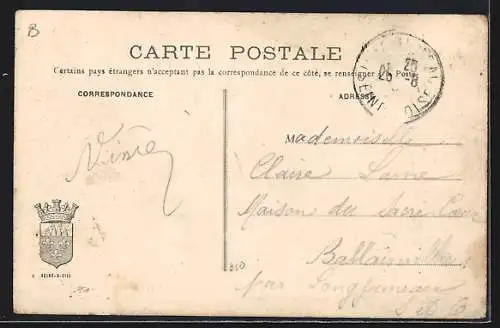 B
CARTE POSTALE
Certains pays étrangers n'acceptant pas la correspondance de ce côté, se renseigner à la Poste
CORRESPONDANCE
ADRESSE
25
25 -8
Mademoiselle
Claire
Maison du Sacré Cœur
Ballainvilliers
par Longjumeau
S et O
350